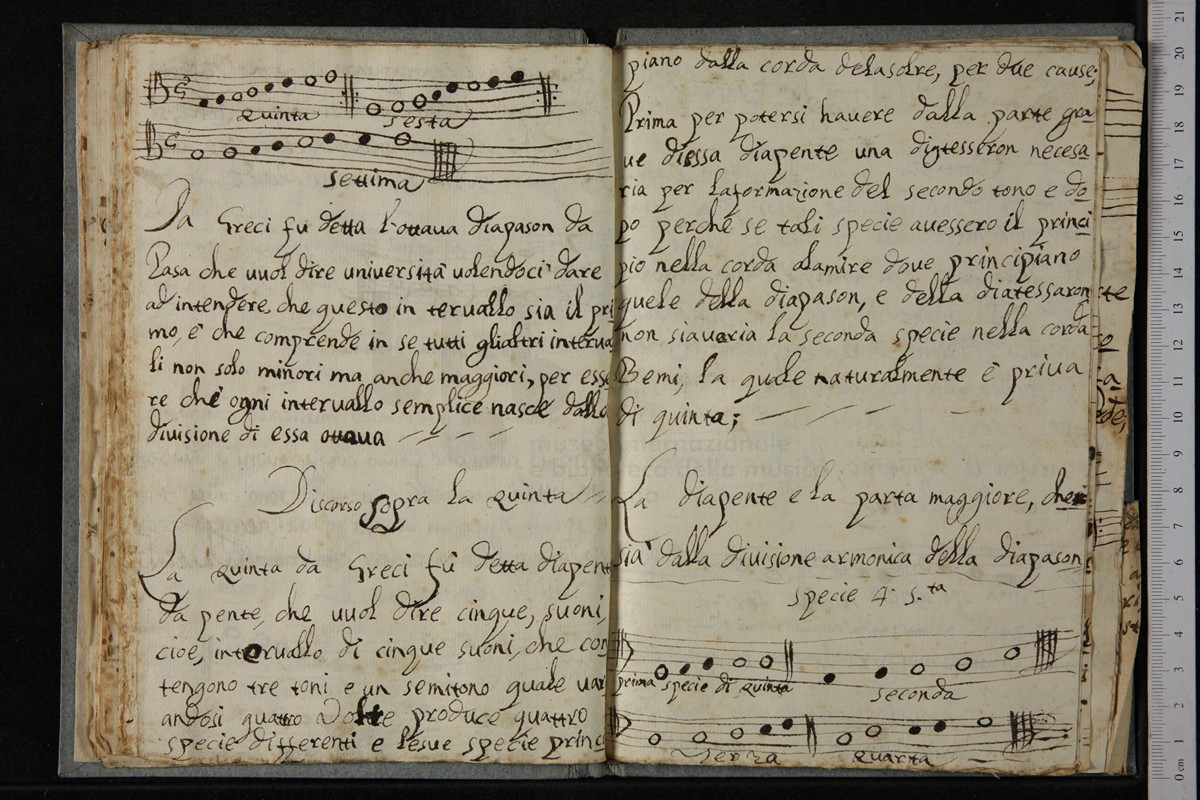 Quinta Sesta
settima
Da Greci fu detta l'ottaua diapason da
Pasa che uuol dire università uolendoci dare
ad intendere, che questo in teruallo sia il pri
mo, è che comprende in se tutti gliastri interua
li non solo minori ma anche maggiori, per esse
re che ogni interuallo semplice nasce dallo
diuisione di essa ottaua
Discorso sopra la Quinta
La quinta da Greci fù detta diapent
da pente, che uuol dire cinque, suoni,
cioè, interuallo di cinque suoni, che con
tengono tre toni e un semitono quale uari
andosi quattro Volte produce quattro
specie differenti e lesue specie princi
piano dalla corda delasolre, per due cause;
Prima per potersi hauere dalla parte gra
ue diessa diapente una digtesseron necesa
ria per laformazione del secondo tono e do
po perche se tali specie auessero il princi
pio nella corda alamire doue principiano
quele della diapason, e della diatessaron
non siaueria la seconda specie nella corda
Bemi, la quale naturalmente è priua
di quinta;
La diapente e la parta maggiore, che
sia dalla diuisione armonica della diapason
specie 4 5.ta
prima specie di quinta seconda
Terza quarta
museo internazionale
e biblioteca della musica
0 cm 1 2 3 4 5 6 7 8 9 10 11 12 13 14 15 16 17 18 19 20 21